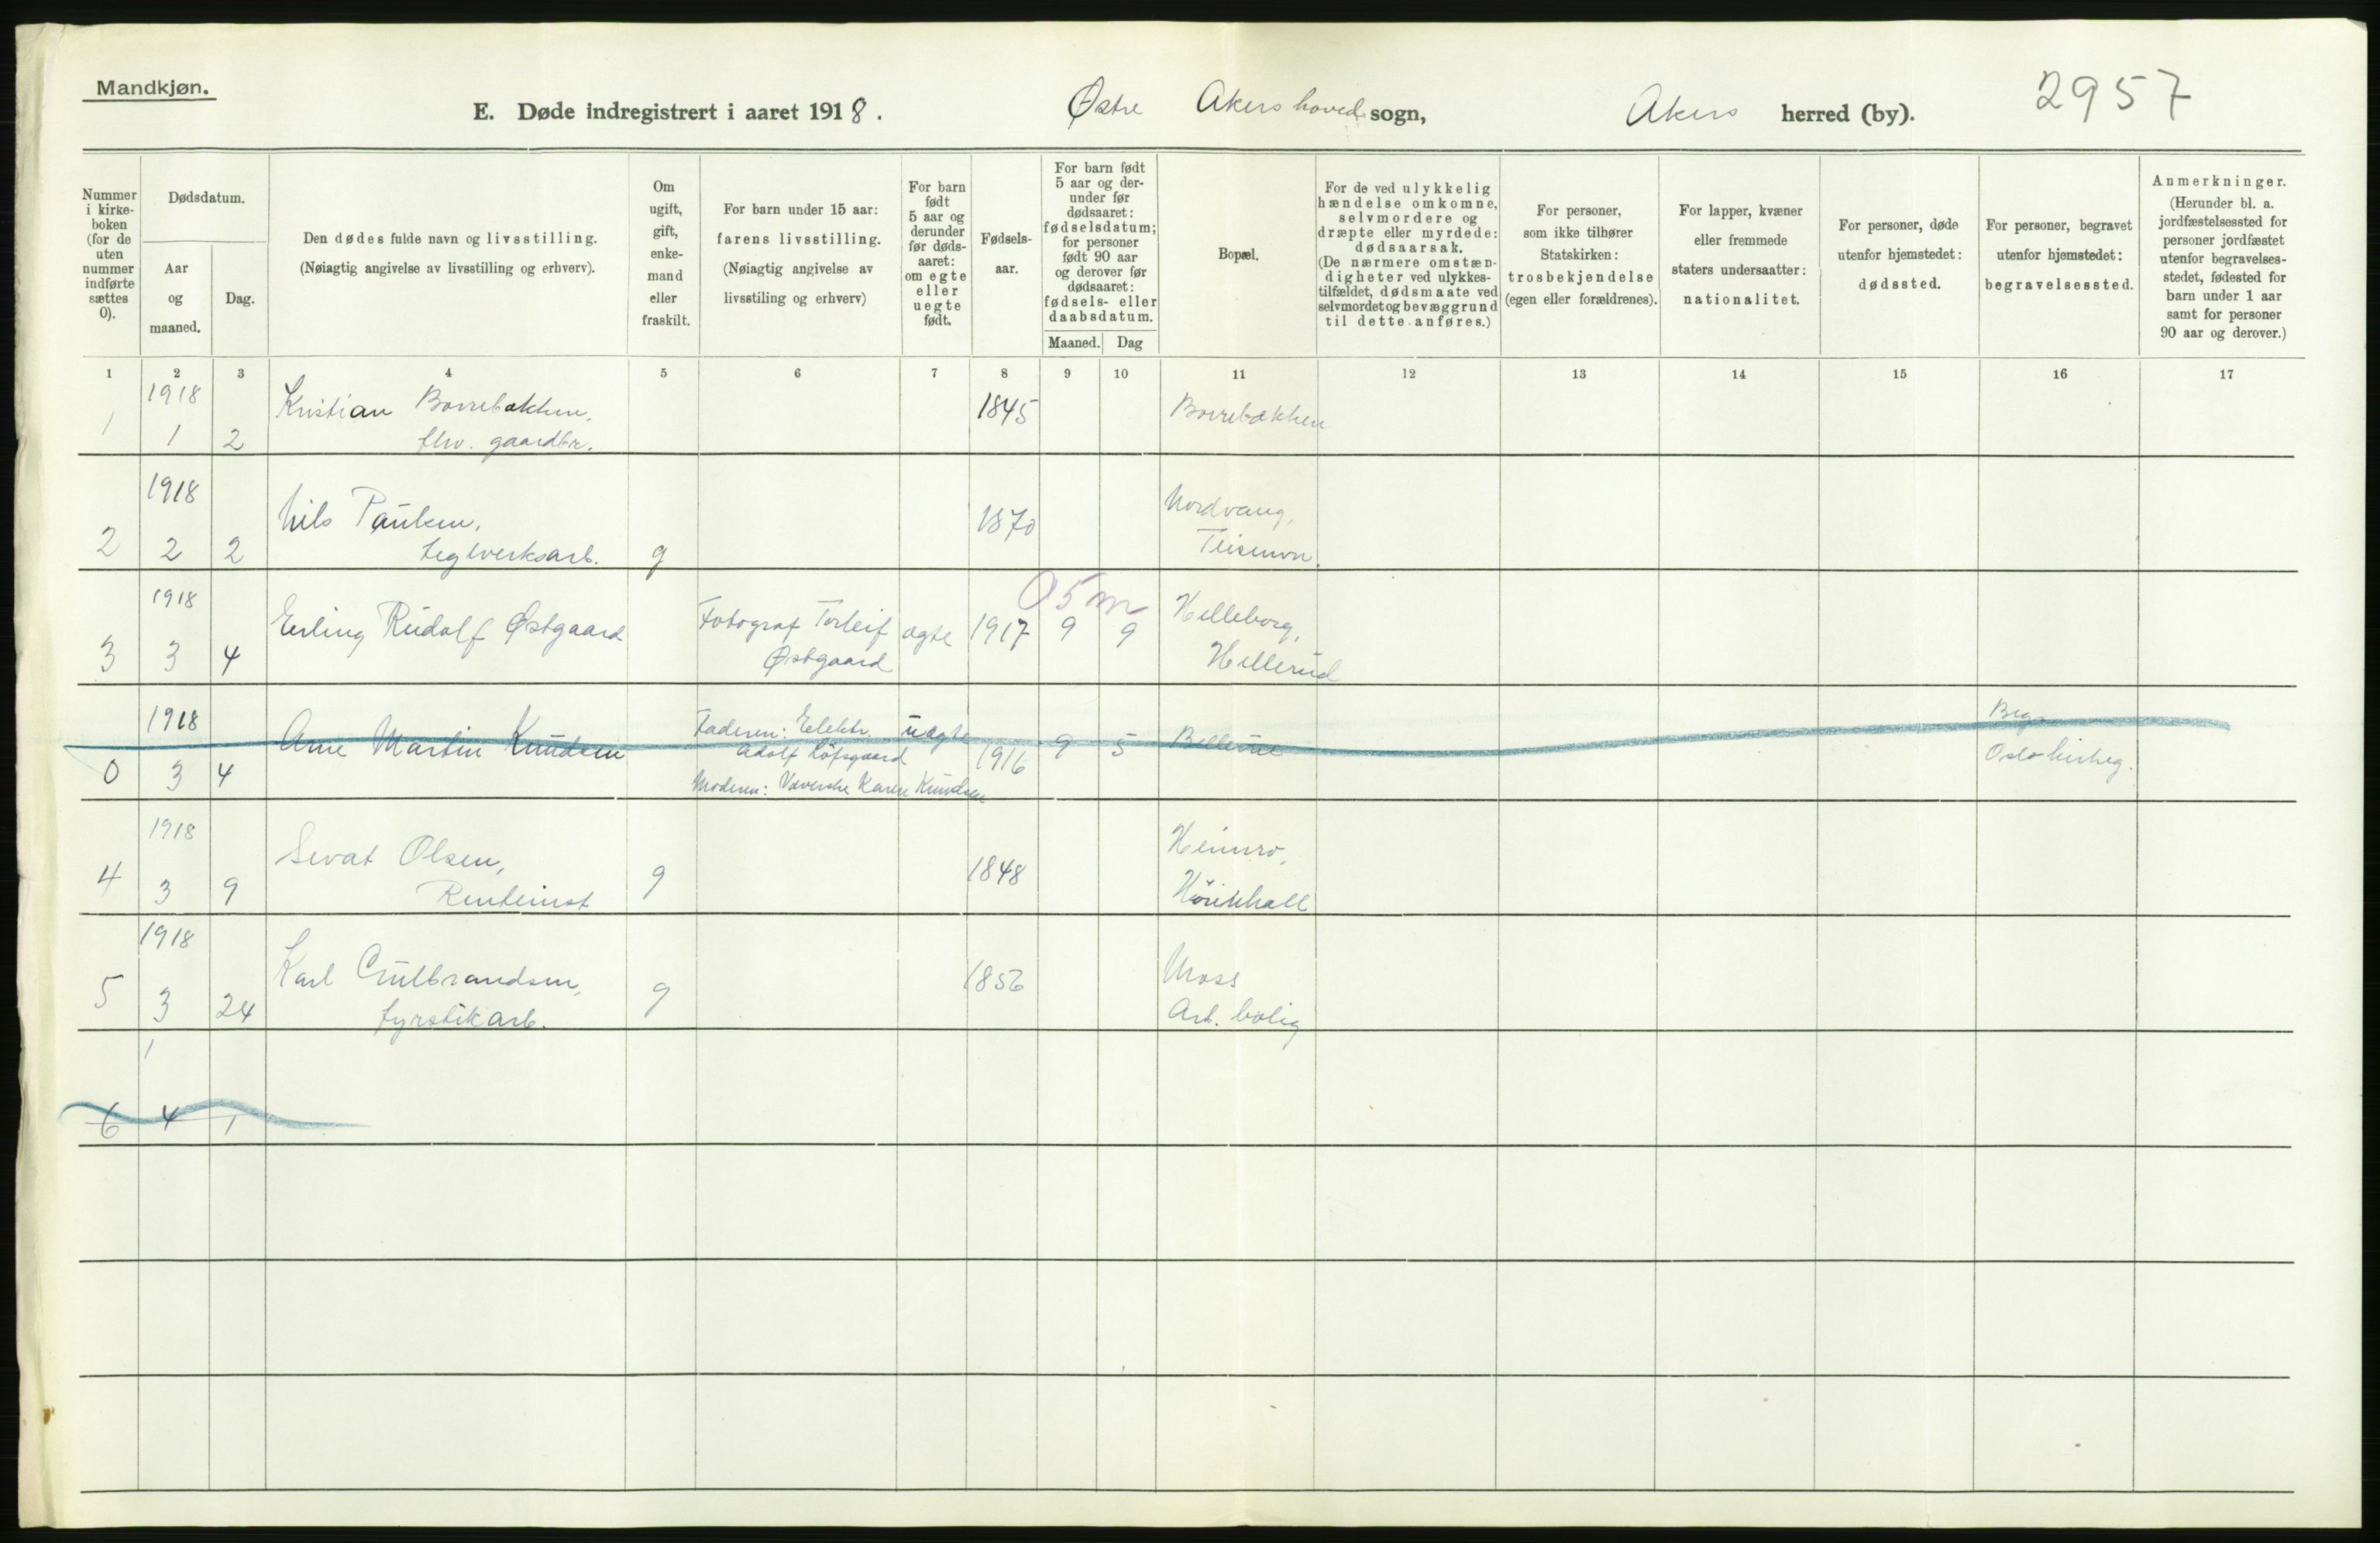 Mandkjøn.
E. Døde indregistrert i aaret 1918. Østre Akers hoved sogn, Akers herred (by). 2957
Nummer i kirke-boken (for de uten nummer indførte sættes 0).
Dødsdatum.
Aar og maaned.
Dag.
Den dødes fulde navn og livsstilling.
(Nøiagtig angivelse av livsstilling og erhverv).
Om ugift, gift, enke-mand eller fraskilt.
For barn under 15 aar: farens livsstilling.
(Nøiagtig angivelse av livsstiling og erhverv)
For barn født 5 aar og derunder før døds-aaret: om egte eller uegte født.
Fødsels-aar.
For barn født 5 aar og der-under før dødsaaret: fødselsdatum; for personer født 90 aar og derover før dødsaaret: fødsels- eller daabsdatum.
Maaned. Dag
Bopæl.
For de ved ulykkelig hændelse omkomne, selvmordere og dræpte eller myrdede: dødsaarsak.
(De nærmere omstæn-digheter ved ulykkes-tilfældet, dødsmaate ved selvmordet og bevæggrund til dette anføres.)
For personer, som ikke tilhører Statskirken: trosbekjendelse (egen eller forældrenes).
For lapper, kvæner eller fremmede staters undersaatter: nationalitet.
For personer, døde utenfor hjemstedet: dødssted.
For personer, begravet utenfor hjemstedet: begravelsessted.
Anmerkninger.
(Herunder bl. a. jordfæstelsessted for personer jordfæstet utenfor begravelses-stedet, fødested for barn under 1 aar samt for personer 90 aar og derover.)
1 2 3 4 5 6 7 8 9 10 11 12 13 14 15 16 17
1918
Kristian Borrebækken, 1845 Borrebækken
1 1 2 fhv. gaardbr.
1918
Nils Paulsen, 1870 Nordvang,
2 2 2 teglverksarb. g Teisenvn.
1918 05m
Erling Rudolf Østgaard Fotograf Torleif ægte 1917 9 9 Helleborg,
3 3 4 Østgaard Hellerud
1918 Faderen: Elektr. uægte Begr.
Arne Martin Knudsen Adolf Løfsgaard 1916 9 5 Oslo kirkeg.
0 3 4 Moderen: Væverske Karen Knudsen
1918
Sevat Olsen, 1848 Heimro,
4 3 9 Rentenist g
1918
Karl Gulbrandsen, 1856 Moss
5 3 24 fyrstikarb. g Arb. bolig
1
6 4 1